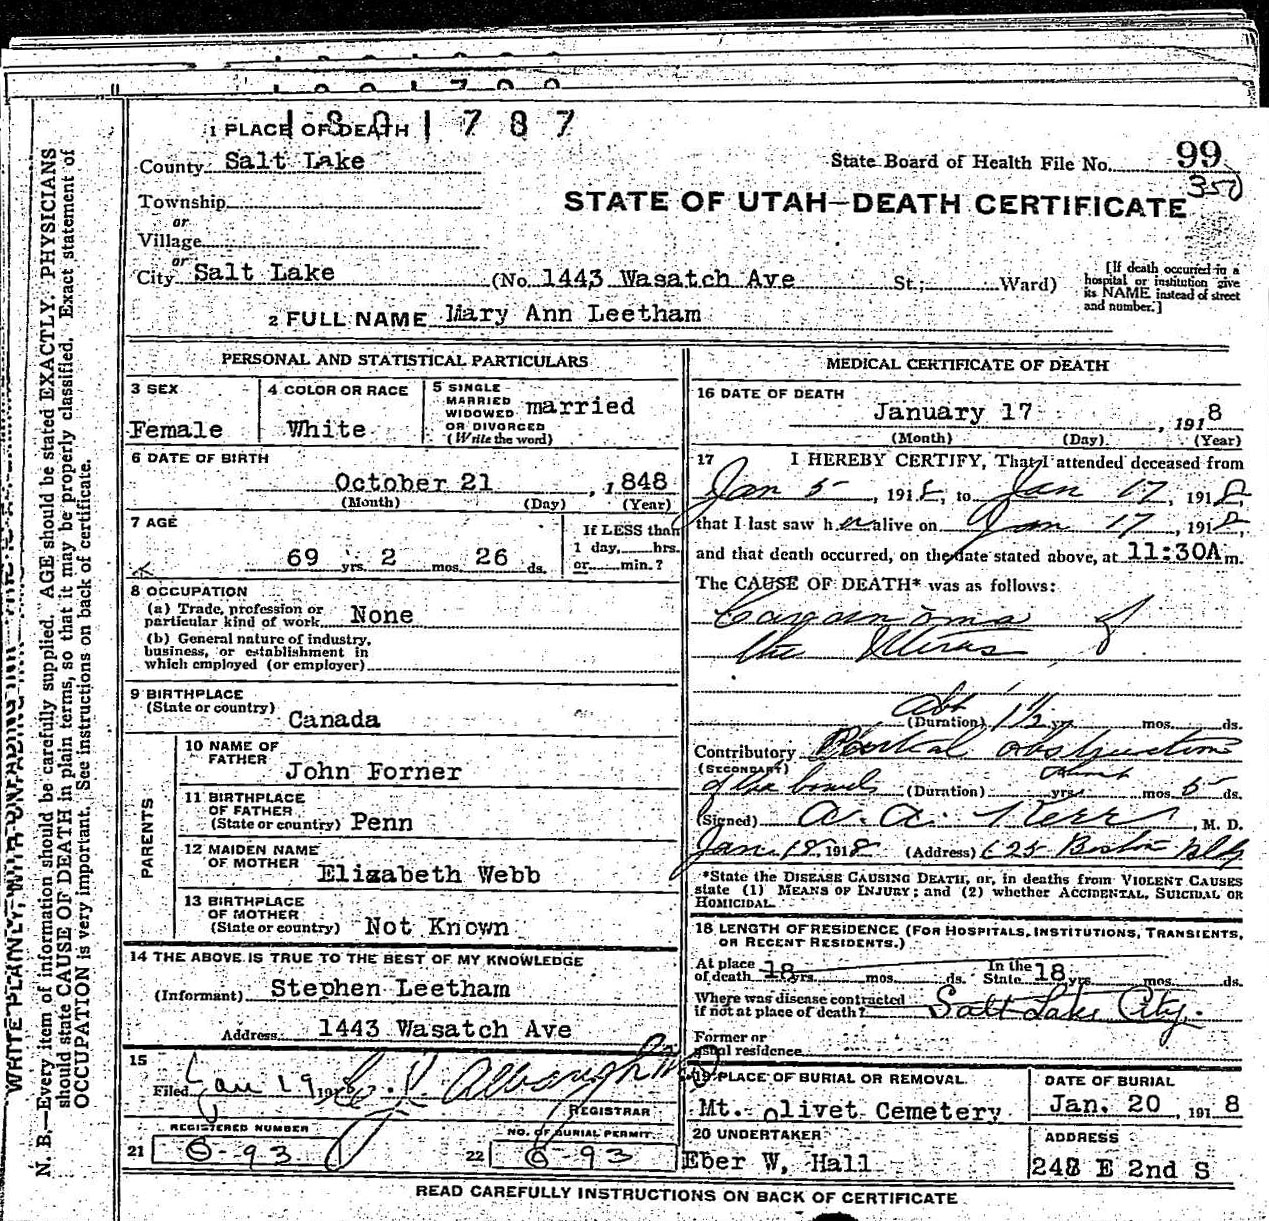 1801787
1 PLACE OF DEATH
County Salt Lake
State Board of Health File No. 99
350
Township
or
Village
or
City Salt Lake
STATE OF UTAH—DEATH CERTIFICATE
(No. 1443 Wasatch Ave St.; Ward)
[If death occurred in a
hospital or institution give
its NAME instead of street
and number.]
2 FULL NAME Mary Ann Leetham
PERSONAL AND STATISTICAL PARTICULARS
3 SEX
Female
4 COLOR OR RACE
White
5 SINGLE
MARRIED
WIDOWED
OR DIVORCED
(Write the word)
married
6 DATE OF BIRTH
October 21, 1848
(Month) (Day) (Year)
7 AGE
69 yrs. 2 mos. 26 ds.
If LESS than
1 day, hrs.
or min.?
8 OCCUPATION
(a) Trade, profession or
particular kind of work None
(b) General nature of industry,
business, or establishment in
which employed (or employer)
9 BIRTHPLACE
(State or country)
Canada
PARENTS
10 NAME OF
FATHER
John Forner
11 BIRTHPLACE
OF FATHER
(State or country) Penn
12 MAIDEN NAME
OF MOTHER
Elizabeth Webb
13 BIRTHPLACE
OF MOTHER
(State or country) Not Known
14 THE ABOVE IS TRUE TO THE BEST OF MY KNOWLEDGE
(Informant) Stephen Leetham
Address 1443 Wasatch Ave
15
Filed Jan 19 1918
REGISTRAR
REGISTERED NUMBER
21 6-93
NO. OF BURIAL PERMIT
22 6-93
MEDICAL CERTIFICATE OF DEATH
16 DATE OF DEATH
January 17, 1918
(Month) (Day) (Year)
17 I HEREBY CERTIFY, That I attended deceased from
Jan 5, 1918, to Jan 17, 1918,
that I last saw her alive on Jan 17, 1918,
and that death occurred, on the date stated above, at 11:30A m.
The CAUSE OF DEATH* was as follows:
Carcinoma of
the Uterus
abt
(Duration) 1½ yrs. mos. ds.
Contributory Partial obstruction
(SECONDARY)
of the bowels (Duration) about yrs. mos. 5 ds.
(Signed) A. A. Kerr, M. D.
Jan. 18, 1918 (Address) 625 Boston Bldg
*State the DISEASE CAUSING DEATH, or, in deaths from VIOLENT CAUSES
state (1) MEANS OF INJURY; and (2) whether ACCIDENTAL, SUICIDAL OR
HOMICIDAL.
18 LENGTH OF RESIDENCE (FOR HOSPITALS, INSTITUTIONS, TRANSIENTS,
OR RECENT RESIDENTS.)
At place
of death 18 yrs. mos. ds.
In the
State 18 yrs. mos. ds.
Where was disease contracted
if not at place of death? Salt Lake City.
Former or
usual residence
19 PLACE OF BURIAL OR REMOVAL
Mt. Olivet Cemetery
DATE OF BURIAL
Jan. 20, 1918
20 UNDERTAKER
Eber W. Hall
ADDRESS
248 E 2nd S
READ CAREFULLY INSTRUCTIONS ON BACK OF CERTIFICATE
N. B.—Every item of information should be carefully supplied. AGE should be stated EXACTLY. PHYSICIANS
should state CAUSE OF DEATH in plain terms, so that it may be properly classified. Exact statement of
OCCUPATION is very important. See instructions on back of certificate.